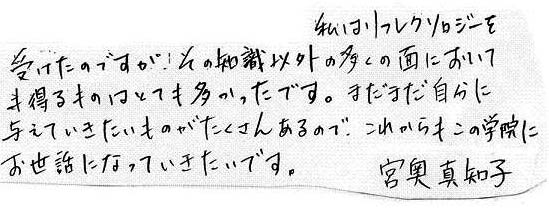 私はリフレクソロジーを
受けたのですが、その知識以外の多くの面において
も得るものはとても多かったです。まだまだ自分に
与えていきたいものがたくさんあるので、これからもこの学院に
お世話になっていきたいです。 宮奥真知子